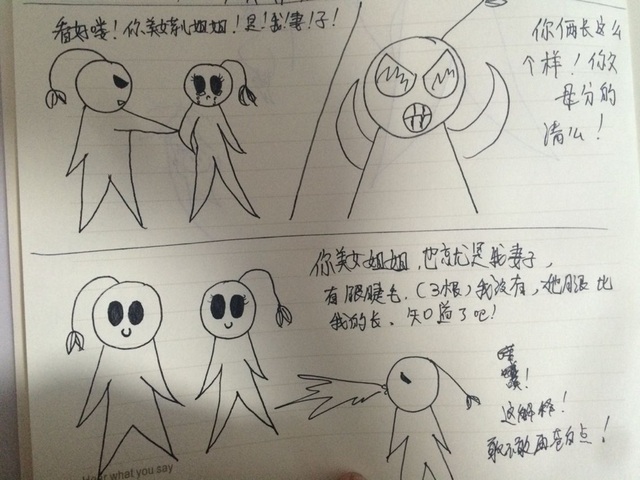 看好喽！你美女姐姐！是！我！妻！子！
你俩长这么
个样！你父
母分的
清么！
你美女姐姐，也就是我妻子，
有眼睫毛.（3根）我没有，她腿比
我的长、知道了吧！
噗
嚷！
这解释！
敢不敢再苍白点！
what you say